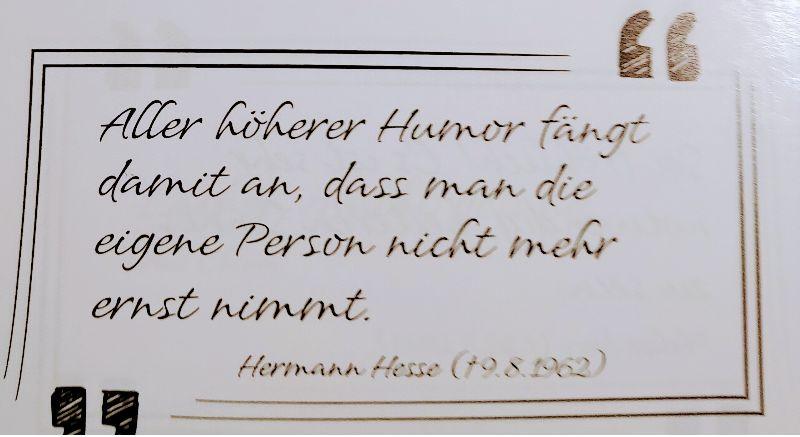 Aller höherer Humor fängt
damit an, dass man die
eigene Person nicht mehr
ernst nimmt.
Hermann Hesse (†9.8.1962)